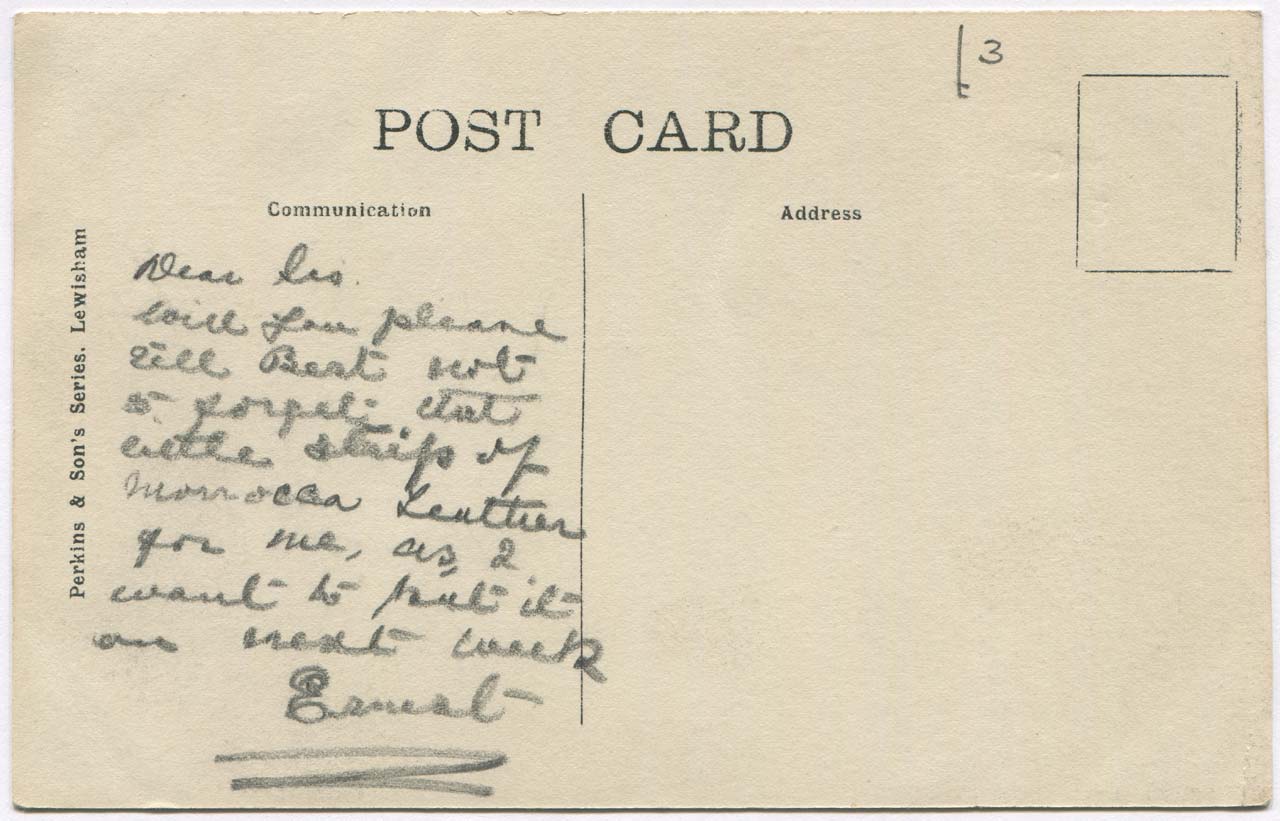 POST CARD
Communication
Address
Perkins & Son's Series. Lewisham
3
Dear Sis.
Will you please
tell Bert not
to forget that
little strip of
Morrocca Leather
for me, as I
want to put it
on next week
Ernest